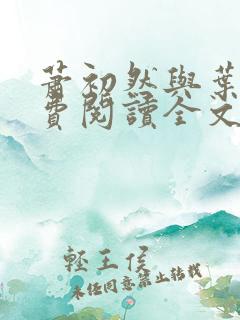 蕭初然與葉
費閱讀全文
輕王侯
未經同意禁止轉載